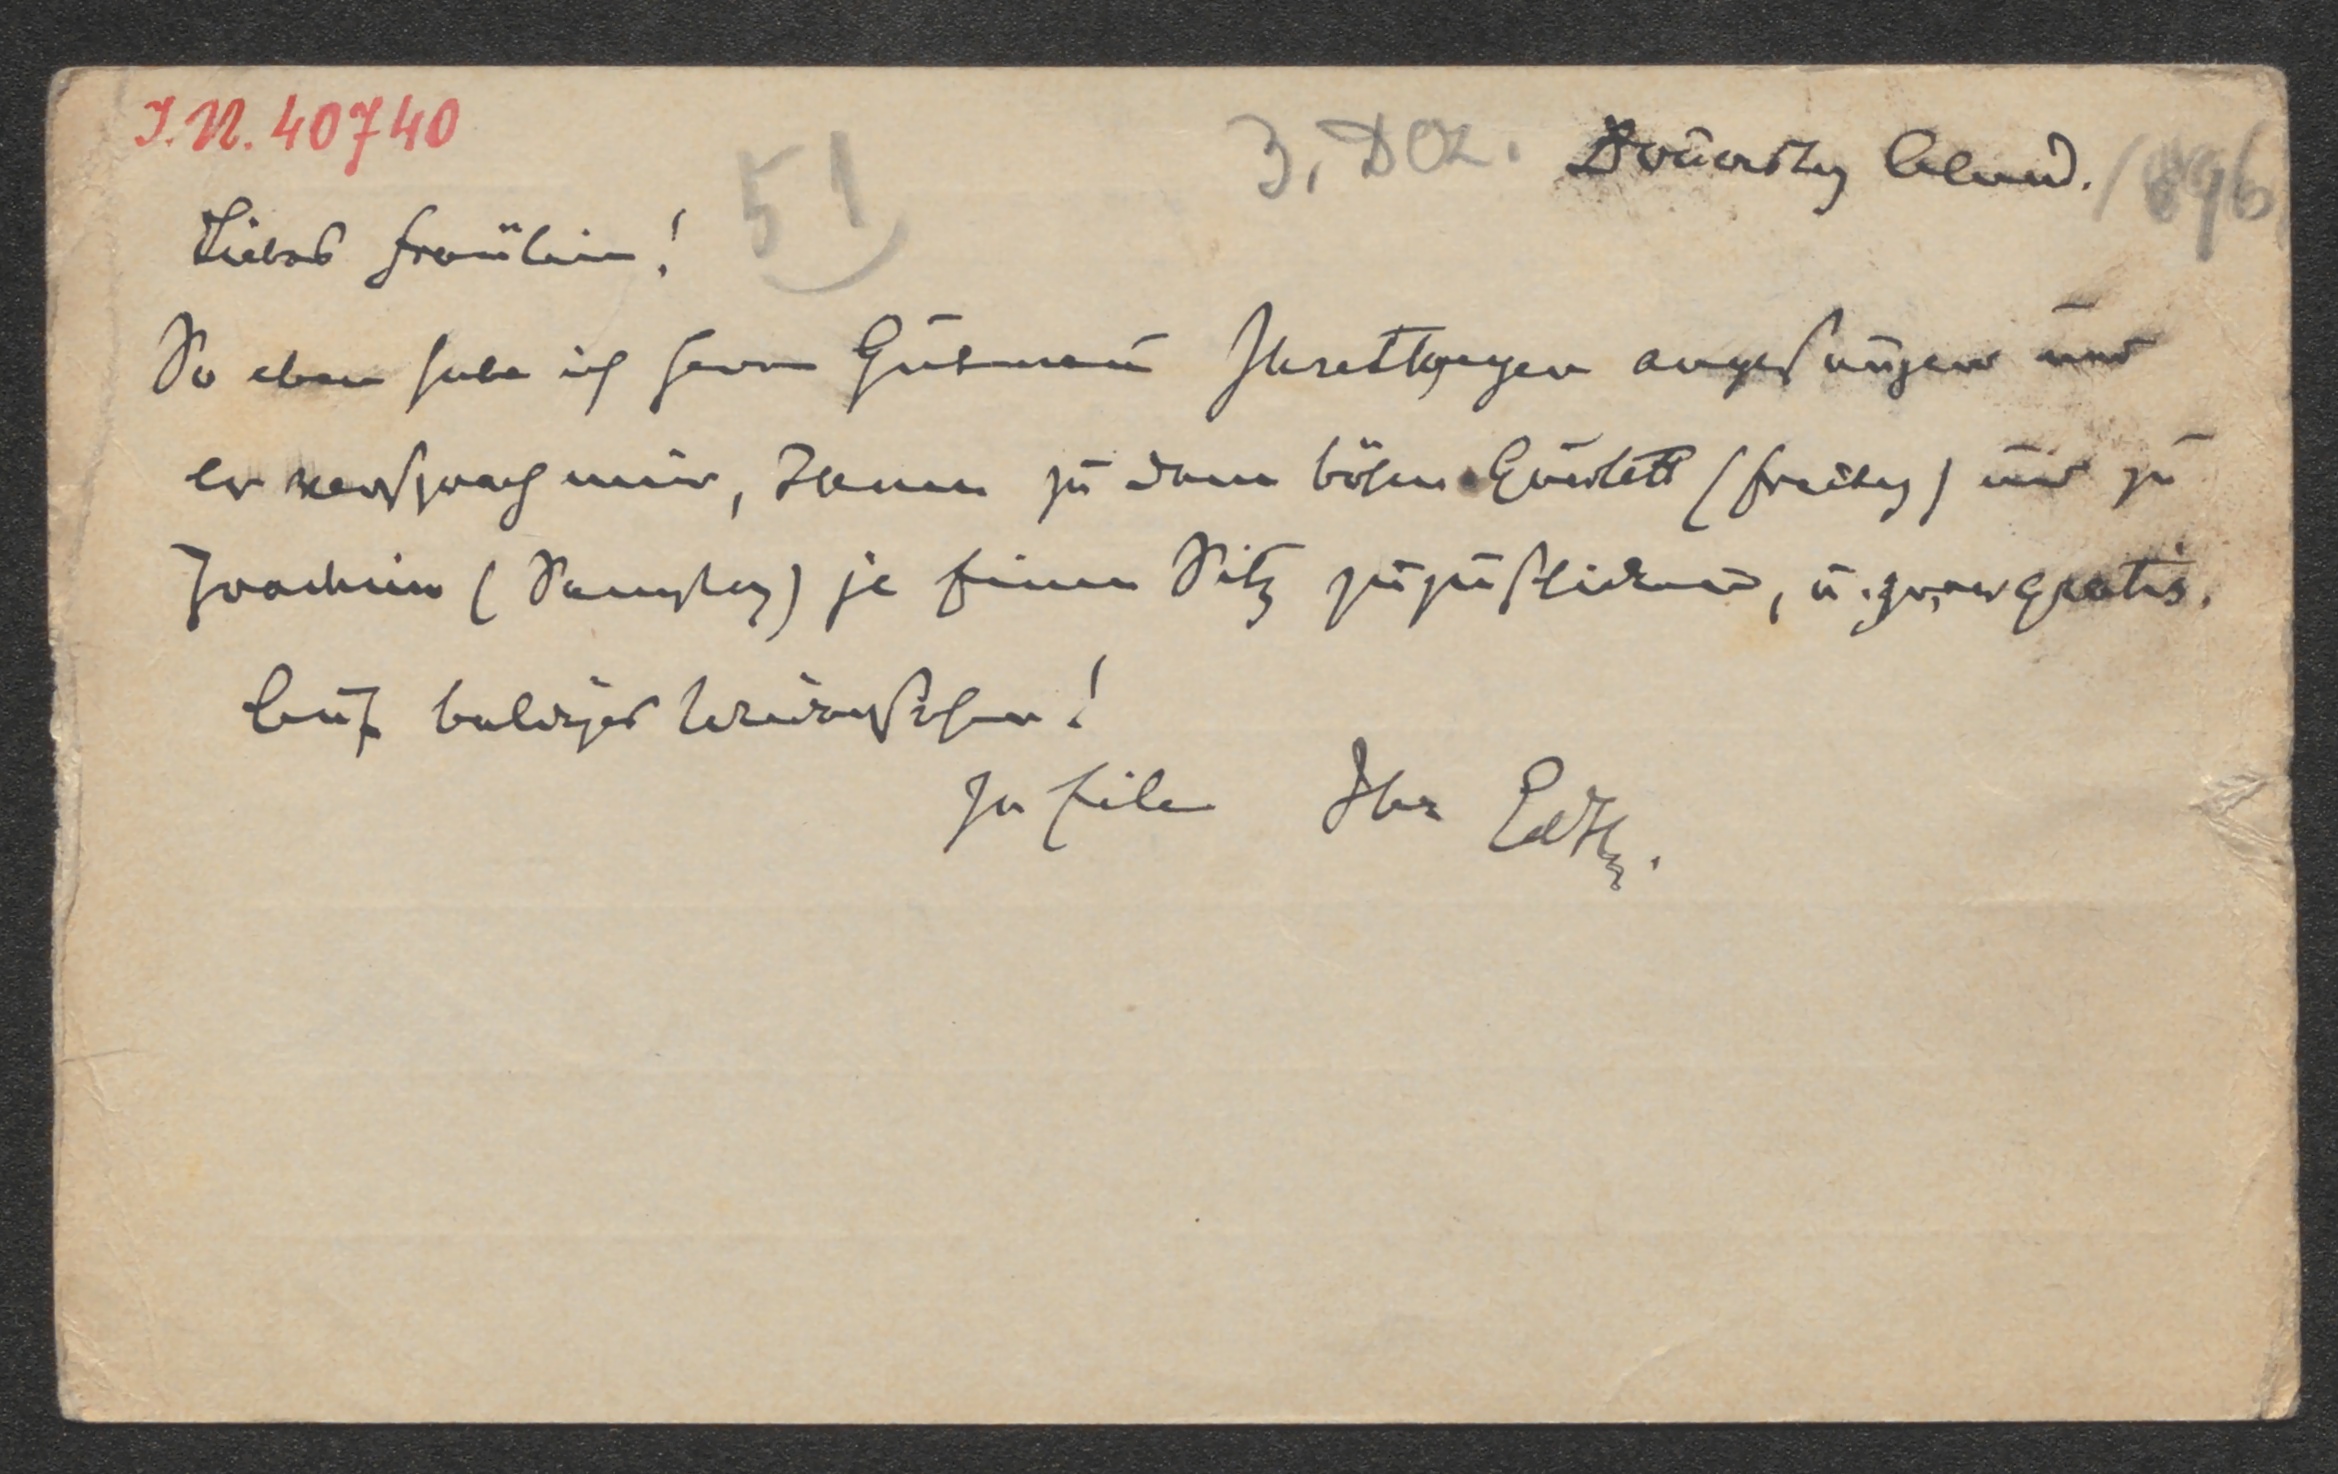 I.N. 40740
51
3. Dez. Donnerstag Abend. 1896
Liebes Fräulein!
So eben habe ich Herrn Gutmann Ihretwegen angesungen und
er versprach mir, Ihnen zu dem böhm. Quartett (Freitag) und zu
Joachim (Samstag) je einen Sitz zuzuschicken, u. zwar gratis.
Auf baldiges Wiedersehen!
In Eile Ihr